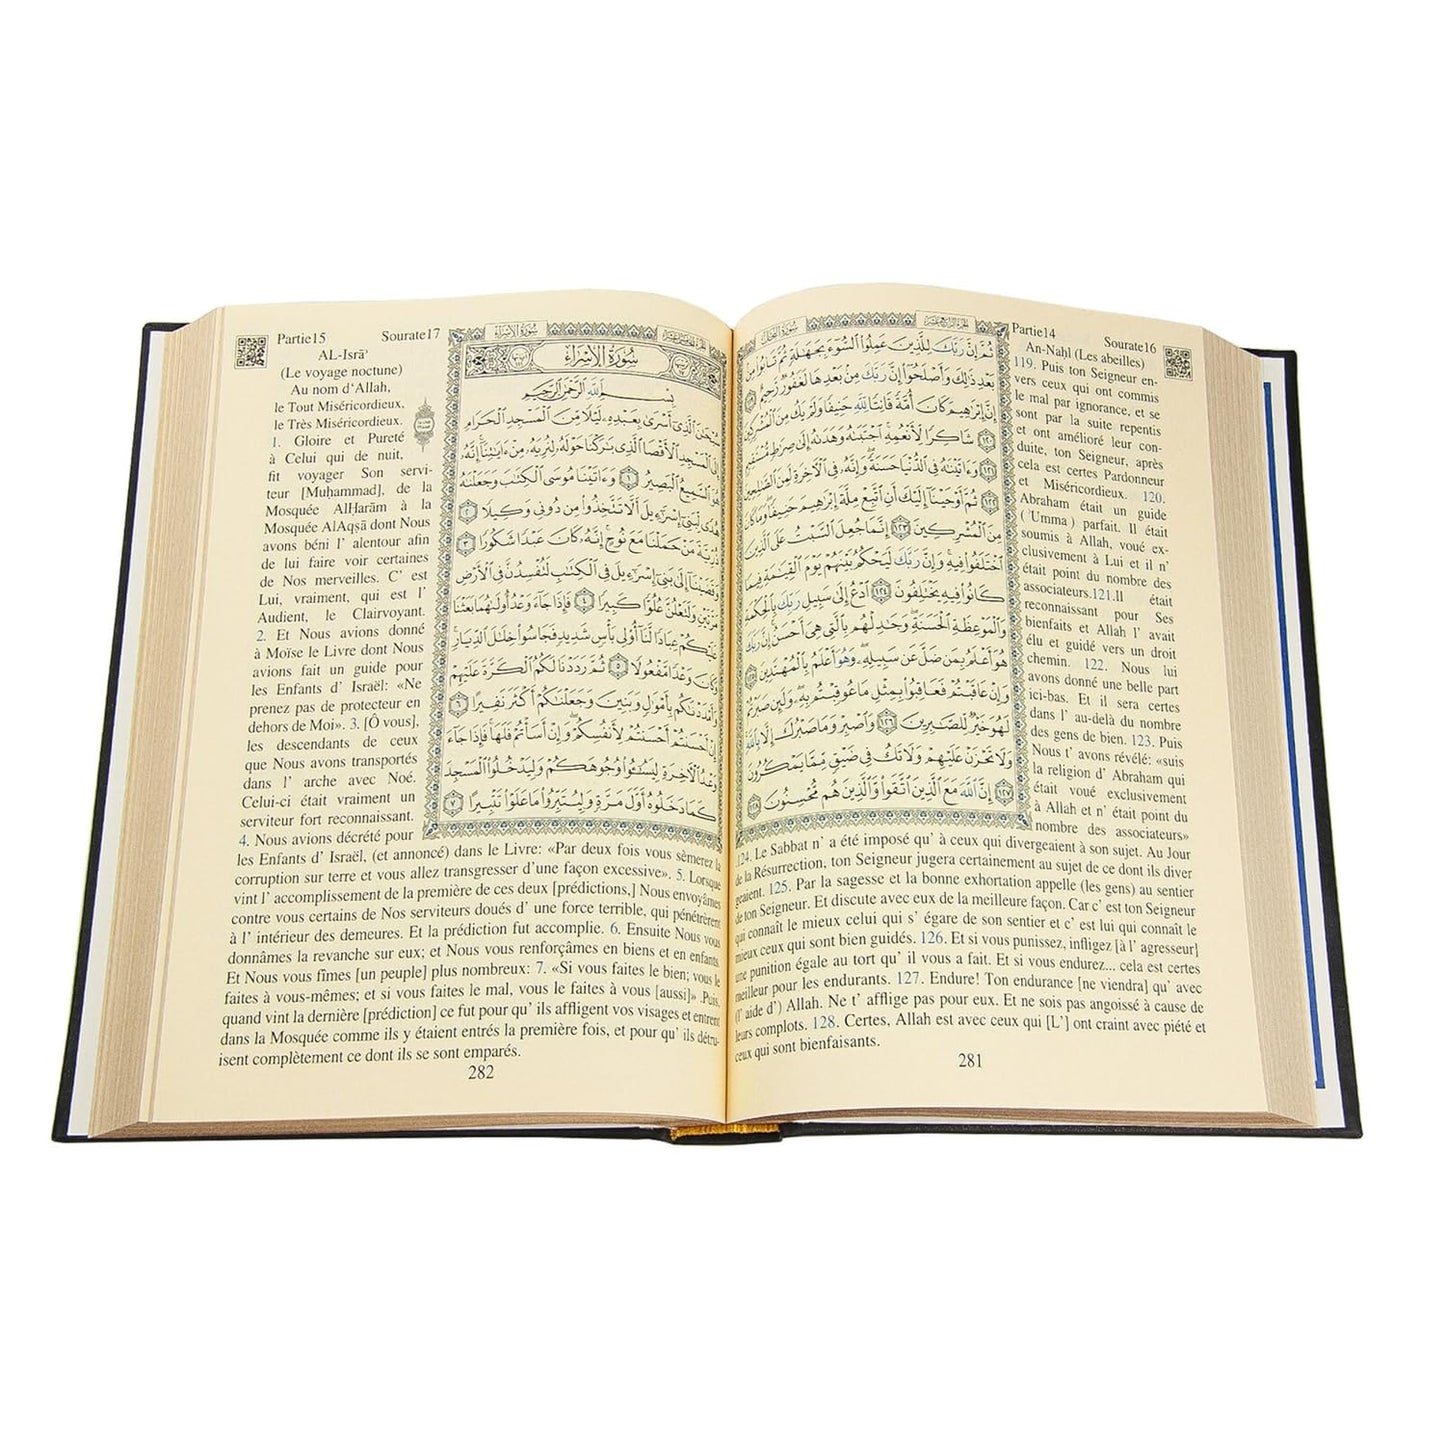 Partie14
Sourate16
An-Naḥl (Les abeilles)
119. Puis ton Seigneur en-
vers ceux qui ont commis
le mal par ignorance, et se
sont par la suite repentis
et ont amélioré leur con-
duite, ton Seigneur, après
cela est certes Pardonneur
et Miséricordieux. 120.
Abraham était un guide
(ʾUmma) parfait. Il était
soumis à Allah, voué ex-
clusivement à Lui et il n'
était point du nombre des
associateurs.121.Il était
reconnaissant pour Ses
bienfaits et Allah l' avait
élu et guidé vers un droit
chemin. 122. Nous lui
avons donné une belle part
ici-bas. Et il sera certes
dans l' au-delà du nombre
des gens de bien. 123. Puis
Nous t' avons révélé: «suis
la religion d' Abraham qui
était voué exclusivement
à Allah et n' était point du
nombre des associateurs»
سُورَةُ النَّحْلِ
الجزء الرابع عشر
ثُمَّ إِنَّ رَبَّكَ لِلَّذِينَ عَمِلُوا۟ ٱلسُّوٓءَ بِجَهَٰلَةٍ ثُمَّ تَابُوا۟ مِنۢ
بَعْدِ ذَٰلِكَ وَأَصْلَحُوٓا۟ إِنَّ رَبَّكَ مِنۢ بَعْدِهَا لَغَفُورٌ رَّحِيمٌ ١١٩
إِنَّ إِبْرَٰهِيمَ كَانَ أُمَّةً قَانِتًا لِّلَّهِ حَنِيفًا وَلَمْ يَكُ مِنَ ٱلْمُشْرِكِينَ
١٢٠ شَاكِرًا لِّأَنْعُمِهِ ۚ ٱجْتَبَىٰهُ وَهَدَىٰهُ إِلَىٰ صِرَٰطٍ مُّسْتَقِيمٍ
١٢١ وَءَاتَيْنَٰهُ فِى ٱلدُّنْيَا حَسَنَةً ۖ وَإِنَّهُۥ فِى ٱلْءَاخِرَةِ لَمِنَ ٱلصَّٰلِحِينَ
١٢٢ ثُمَّ أَوْحَيْنَآ إِلَيْكَ أَنِ ٱتَّبِعْ مِلَّةَ إِبْرَٰهِيمَ حَنِيفًا ۖ وَمَا كَانَ
مِنَ ٱلْمُشْرِكِينَ ١٢٣ إِنَّمَا جُعِلَ ٱلسَّبْتُ عَلَى ٱلَّذِينَ
ٱخْتَلَفُوا۟ فِيهِ ۚ وَإِنَّ رَبَّكَ لَيَحْكُمُ بَيْنَهُمْ يَوْمَ ٱلْقِيَٰمَةِ فِيمَا
كَانُوا۟ فِيهِ يَخْتَلِفُونَ ١٢٤ ٱدْعُ إِلَىٰ سَبِيلِ رَبِّكَ بِٱلْحِكْمَةِ
وَٱلْمَوْعِظَةِ ٱلْحَسَنَةِ ۖ وَجَٰدِلْهُم بِٱلَّتِى هِىَ أَحْسَنُ ۚ إِنَّ رَبَّكَ
هُوَ أَعْلَمُ بِمَن ضَلَّ عَن سَبِيلِهِۦ ۖ وَهُوَ أَعْلَمُ بِٱلْمُهْتَدِينَ ١٢٥
وَإِنْ عَاقَبْتُمْ فَعَاقِبُوا۟ بِمِثْلِ مَا عُوقِبْتُم بِهِۦ ۖ وَلَئِن صَبَرْتُمْ
لَهُوَ خَيْرٌ لِّلصَّٰبِرِينَ ١٢٦ وَٱصْبِرْ وَمَا صَبْرُكَ إِلَّا بِٱللَّهِ ۚ
وَلَا تَحْزَنْ عَلَيْهِمْ وَلَا تَكُ فِى ضَيْقٍ مِّمَّا يَمْكُرُونَ
١٢٧ إِنَّ ٱللَّهَ مَعَ ٱلَّذِينَ ٱتَّقَوا۟ وَّٱلَّذِينَ هُم مُّحْسِنُونَ ١٢٨
.124. Le Sabbat n' a été imposé qu' à ceux qui divergeaient à son sujet. Au Jour
de la Résurrection, ton Seigneur jugera certainement au sujet de ce dont ils diver
geaient. 125. Par la sagesse et la bonne exhortation appelle (les gens) au sentier
de ton Seigneur. Et discute avec eux de la meilleure façon. Car c' est ton Seigneur
qui connaît le mieux celui qui s' égare de son sentier et c' est lui qui connaît le
mieux ceux qui sont bien guidés. 126. Et si vous punissez, infligez [à l' agresseur]
une punition égale au tort qu' il vous a fait. Et si vous endurez... cela est certes
meilleur pour les endurants. 127. Endure! Ton endurance [ne viendra] qu' avec
(l' aide d') Allah. Ne t' afflige pas pour eux. Et ne sois pas angoissé à cause de
leurs complots. 128. Certes, Allah est avec ceux qui [L'] ont craint avec piété et
ceux qui sont bienfaisants.
281
Partie15 Sourate17
AL-Isrāʾ
(Le voyage noctune)
Au nom d'Allah,
le Tout Miséricordieux,
le Très Miséricordieux.
1. Gloire et Pureté
à Celui qui de nuit,
fit voyager Son servi-
teur [Muḥammad], de la
Mosquée AlḤarām à la
Mosquée AlAqsā dont Nous
avons béni l' alentour afin
de lui faire voir certaines
de Nos merveilles. C' est
Lui, vraiment, qui est l'
Audient, le Clairvoyant.
2. Et Nous avions donné
à Moïse le Livre dont Nous
avions fait un guide pour
les Enfants d' Israël: «Ne
prenez pas de protecteur en
dehors de Moi». 3. [Ô vous],
les descendants de ceux
que Nous avons transportés
dans l' arche avec Noé.
Celui-ci était vraiment un
serviteur fort reconnaissant.
4. Nous avions décrété pour
سُورَةُ الإِسْرَاءِ
الجزء الخامس عشر
سُورَةُ الإِسْرَاءِ
بِسْمِ ٱللَّهِ ٱلرَّحْمَٰنِ ٱلرَّحِيمِ
سُبْحَٰنَ ٱلَّذِىٓ أَسْرَىٰ بِعَبْدِهِۦ لَيْلًا مِّنَ ٱلْمَسْجِدِ ٱلْحَرَامِ
إِلَى ٱلْمَسْجِدِ ٱلْأَقْصَا ٱلَّذِى بَٰرَكْنَا حَوْلَهُۥ لِنُرِيَهُۥ مِنْ ءَايَٰتِنَآ ۚ إِنَّهُۥ
هُوَ ٱلسَّمِيعُ ٱلْبَصِيرُ ١ وَءَاتَيْنَا مُوسَى ٱلْكِتَٰبَ وَجَعَلْنَٰهُ
هُدًى لِّبَنِىٓ إِسْرَٰٓءِيلَ أَلَّا تَتَّخِذُوا۟ مِن دُونِى وَكِيلًا ٢
ذُرِّيَّةَ مَنْ حَمَلْنَا مَعَ نُوحٍ ۚ إِنَّهُۥ كَانَ عَبْدًا شَكُورًا ٣
وَقَضَيْنَآ إِلَىٰ بَنِىٓ إِسْرَٰٓءِيلَ فِى ٱلْكِتَٰبِ لَتُفْسِدُنَّ فِى ٱلْأَرْضِ
مَرَّتَيْنِ وَلَتَعْلُنَّ عُلُوًّا كَبِيرًا ٤ فَإِذَا جَآءَ وَعْدُ أُولَىٰهُمَا بَعَثْنَا
عَلَيْكُمْ عِبَادًا لَّنَآ أُو۟لِى بَأْسٍ شَدِيدٍ فَجَاسُوا۟ خِلَٰلَ ٱلدِّيَارِ ۚ
وَكَانَ وَعْدًا مَّفْعُولًا ٥ ثُمَّ رَدَدْنَا لَكُمُ ٱلْكَرَّةَ عَلَيْهِمْ
وَأَمْدَدْنَٰكُم بِأَمْوَٰلٍ وَبَنِينَ وَجَعَلْنَٰكُمْ أَكْثَرَ نَفِيرًا ٦
إِنْ أَحْسَنتُمْ أَحْسَنتُمْ لِأَنفُسِكُمْ ۖ وَإِنْ أَسَأْتُمْ فَلَهَا ۚ فَإِذَا جَآءَ
وَعْدُ ٱلْءَاخِرَةِ لِيَسُۥٓـُٔوا۟ وُجُوهَكُمْ وَلِيَدْخُلُوا۟ ٱلْمَسْجِدَ
كَمَا دَخَلُوهُ أَوَّلَ مَرَّةٍ وَلِيُتَبِّرُوا۟ مَا عَلَوْا۟ تَتْبِيرًا ٧
les Enfants d' Israël, (et annoncé) dans le Livre: «Par deux fois vous sèmerez la
corruption sur terre et vous allez transgresser d'une façon excessive». 5. Lorsque
vint l' accomplissement de la première de ces deux [prédictions,] Nous envoyâmes
contre vous certains de Nos serviteurs doués d' une force terrible, qui pénétrèrent
à l' intérieur des demeures. Et la prédiction fut accomplie. 6. Ensuite Nous vous
donnâmes la revanche sur eux; et Nous vous renforçâmes en biens et en enfants.
Et Nous vous fîmes [un peuple] plus nombreux: 7. «Si vous faites le bien; vous le
faites à vous-mêmes; et si vous faites le mal, vous le faites à vous [aussi]» .Puis,
quand vint la dernière [prédiction] ce fut pour qu' ils affligent vos visages et entrent
dans la Mosquée comme ils y étaient entrés la première fois, et pour qu' ils détru-
isent complètement ce dont ils se sont emparés.
282